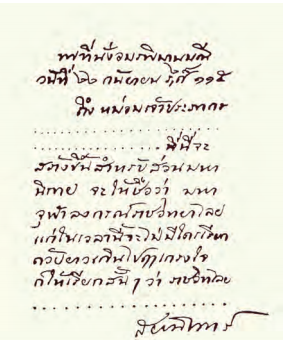 พที่นั่งอมรพิมานมณี
วันที่ ๖๖ กันยายน ร,ศ ๑๑๕
ถึง หม่อมเจ้าประภากร
.........................
.................. ที่นี่จะ
สร้างขึ้นสำหรับส่วนมหา
นิกาย จะให้ชื่อว่า มหา
จุฬาลงกรณ์ราชวิทยาไลย
แต่ในเวลานี้จะไม่มีใครเรียก
ด้วยยาวเกินไปฤๅเกรงใจ
ก็ให้เรียกสั้น ๆ ว่า ราชวิทไลย
.........................
สยามินทร์